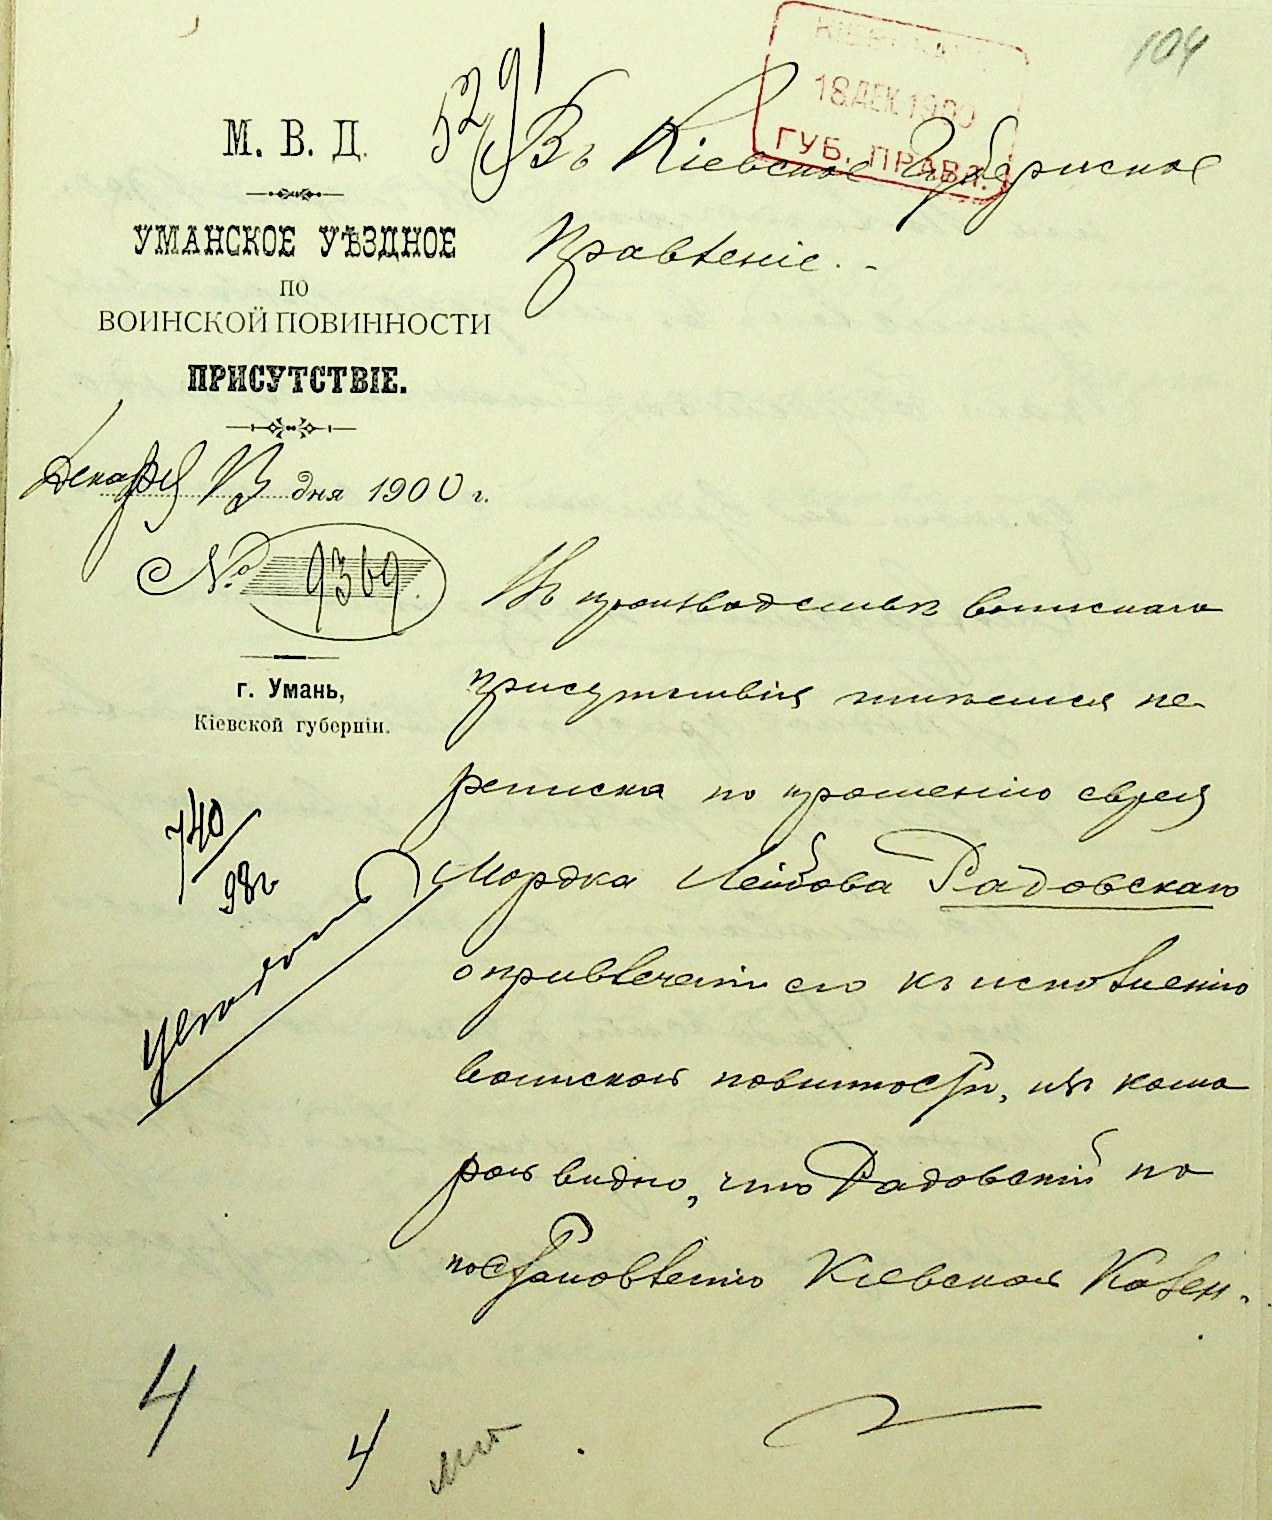 104
КІЕВСКАГО
18 ДЕК. 1900
ГУБ. ПРАВЛ.
5291
М. В. Д.
УМАНСКОЕ УѢЗДНОЕ
ПО
ВОИНСКОЙ ПОВИННОСТИ
ПРИСУТСТВІЕ.
Декабря 13 дня 1900 г.
№ 9369.
г. Умань,
Кіевской губерніи.
740/98 г.
Въ Кіевское Губернское
Правленіе. -
Въ производствѣ воинскаго
присутствія имѣется пе-
реписка по прошенію еврея
Мордка Лейбова Радовскаго
о привлеченіи его къ исполненію
воинской повинности, изъ кото
рой видно, что Радовскій по
постановленію Кіевской Казен-
4
4